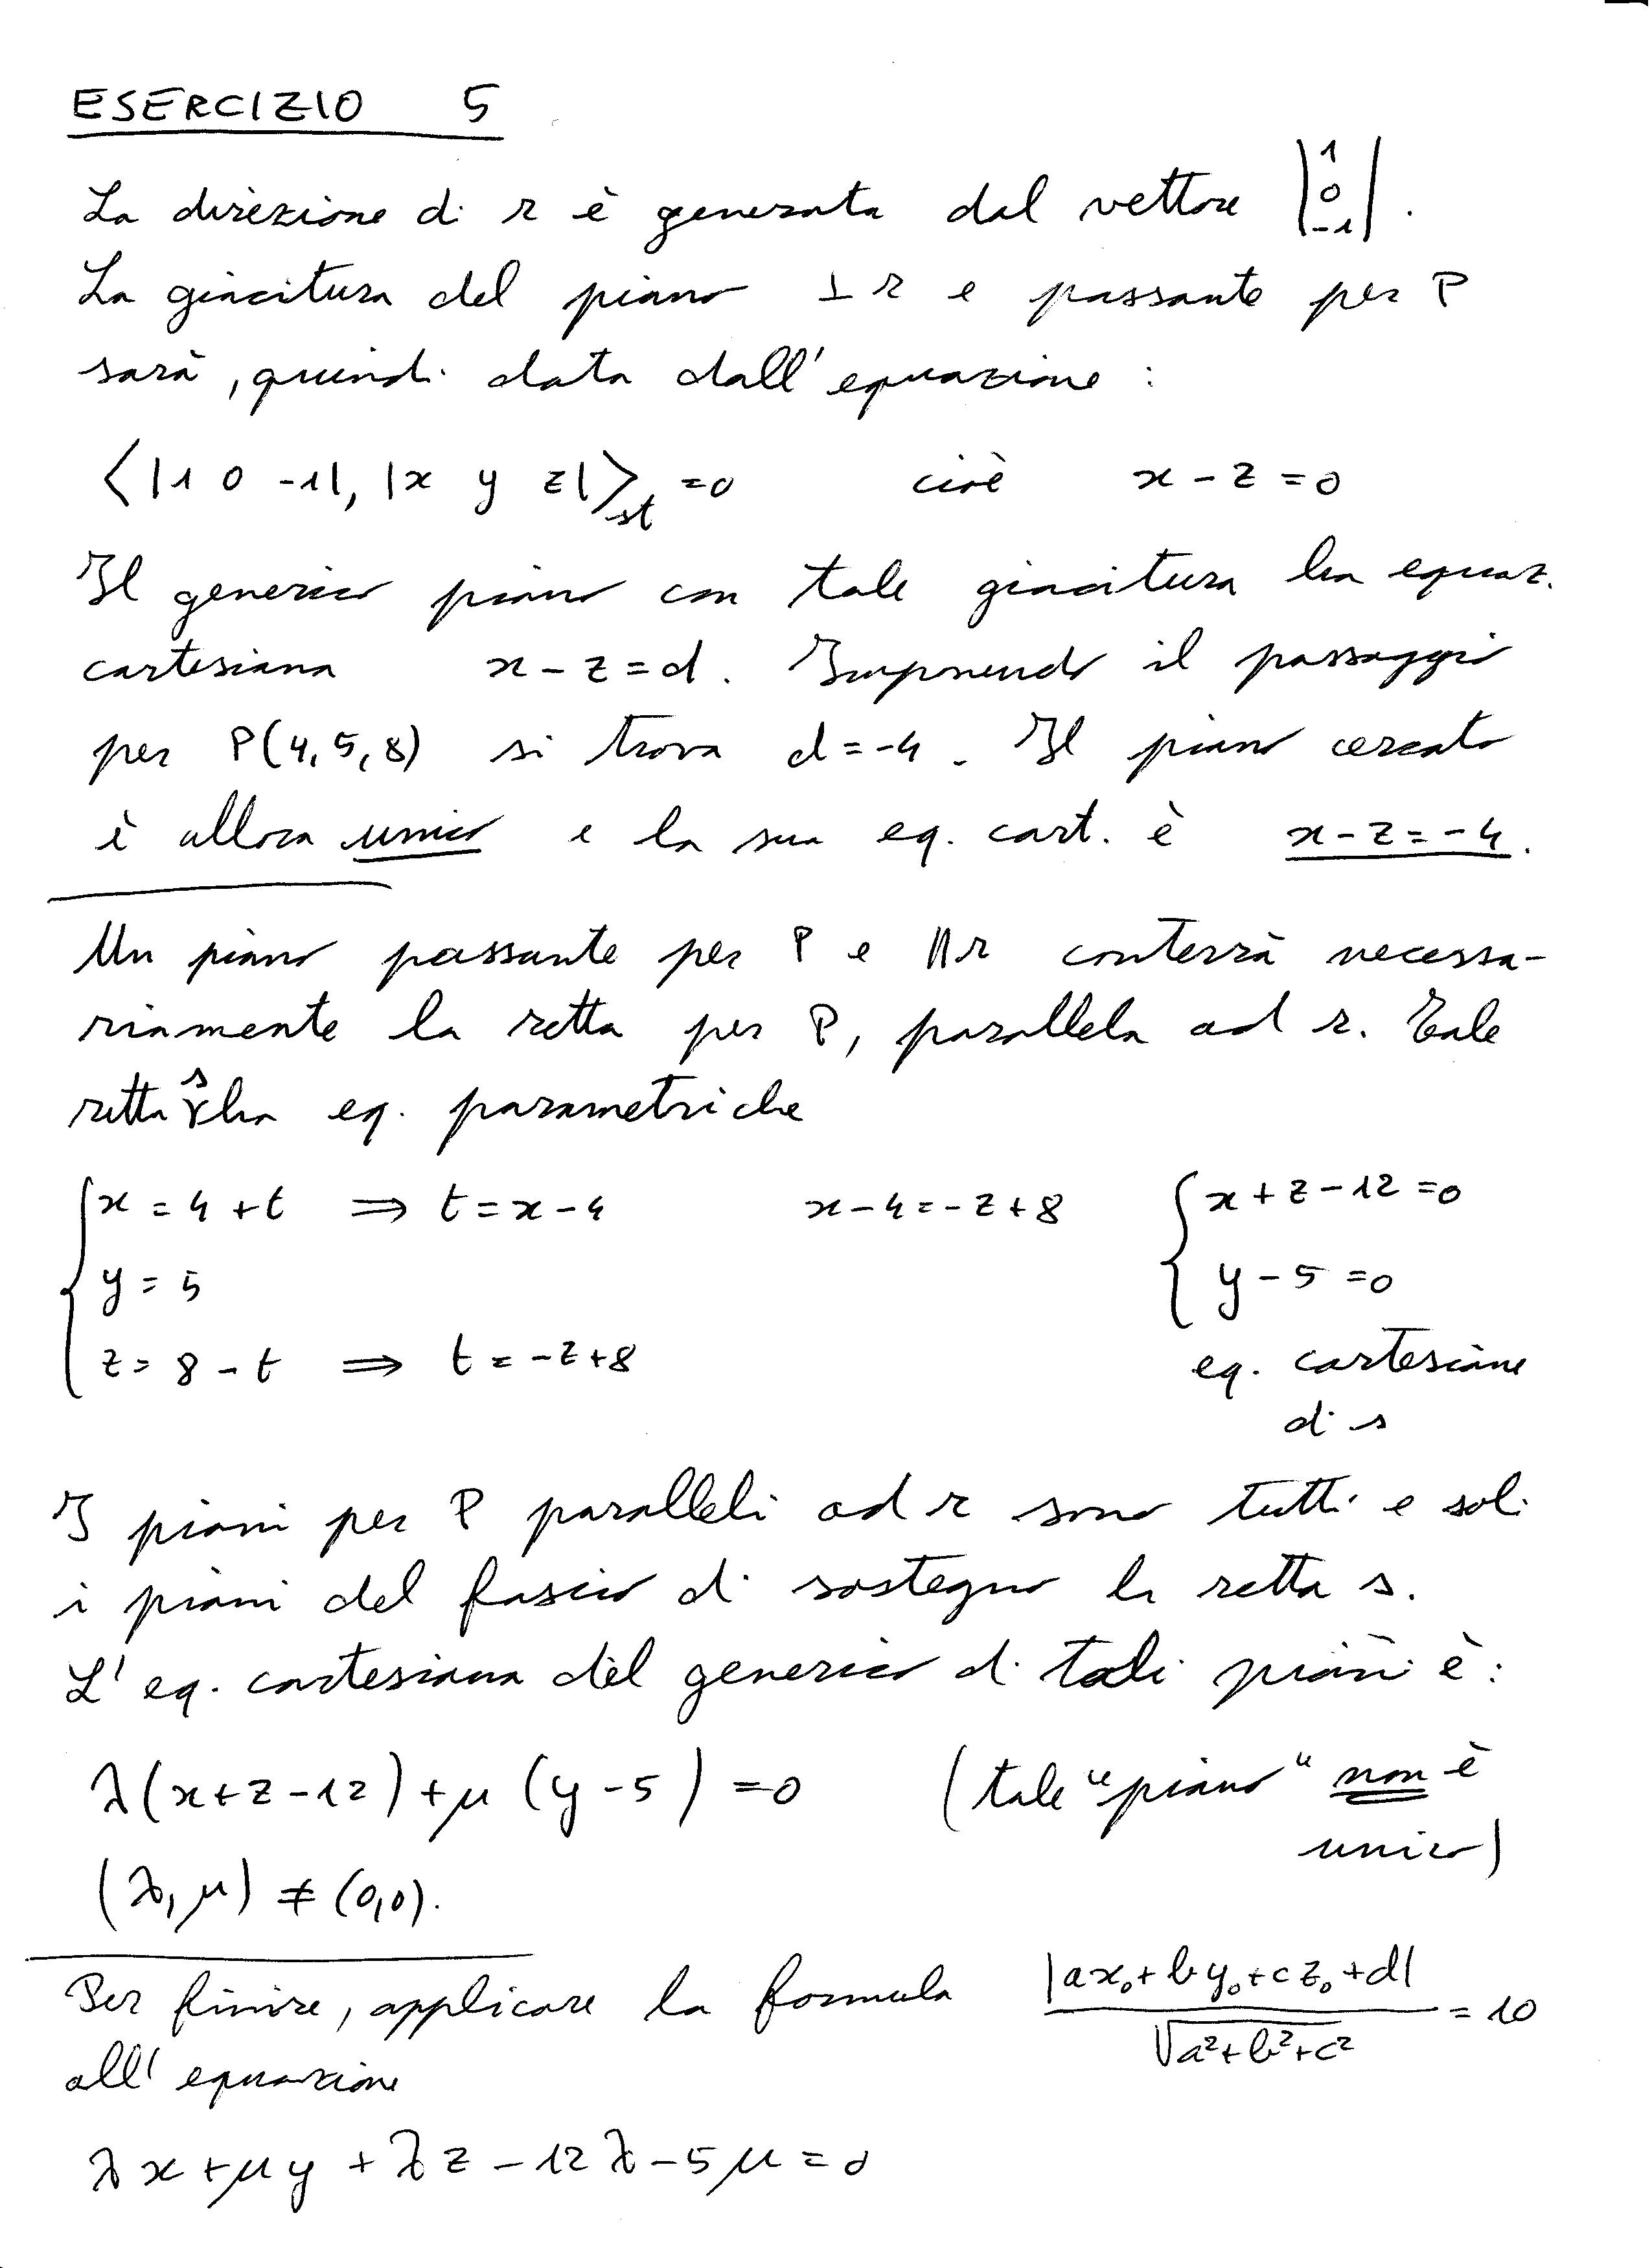 ESERCIZIO 5
La direzione di r è generata dal vettore |1 0 -1|.
La giacitura del piano ⊥ r e passante per P
sarà, quindi data dall'equazione :
⟨|1 0 -1|, |x y z|⟩st =0 cioè x - z = 0
Il generico piano con tale giacitura ha equaz.
cartesiana x - z = d. Imponendo il passaggio
per P(4,5,8) si trova d = -4. Il piano cercato
è allora unico e la sua eq. cart. è x - z = -4.
Un piano passante per P e ∥ r conterrà necessa-
riamente la retta per P, parallela ad r. Tale
retta s ha eq. parametriche
x = 4 + t ⇒ t = x - 4 x - 4 = - z + 8 { x + z - 12 = 0
y = 5 y - 5 = 0
z = 8 - t ⇒ t = - z + 8 eq. cartesiane
di s
I piani per P paralleli ad r sono tutti e soli
i piani del fascio di sostegno la retta s.
L'eq. cartesiana del generico di tali piani è :
λ(x + z - 12) + μ (y - 5) = 0 (tale "piano" non è
unico)
(λ, μ) ≠ (0,0).
Per finire, applicare la formula |ax₀ + by₀ + cz₀ + d| / √a² + b² + c² = 10
all'equazione
λx + μy + λz - 12λ - 5μ = 0